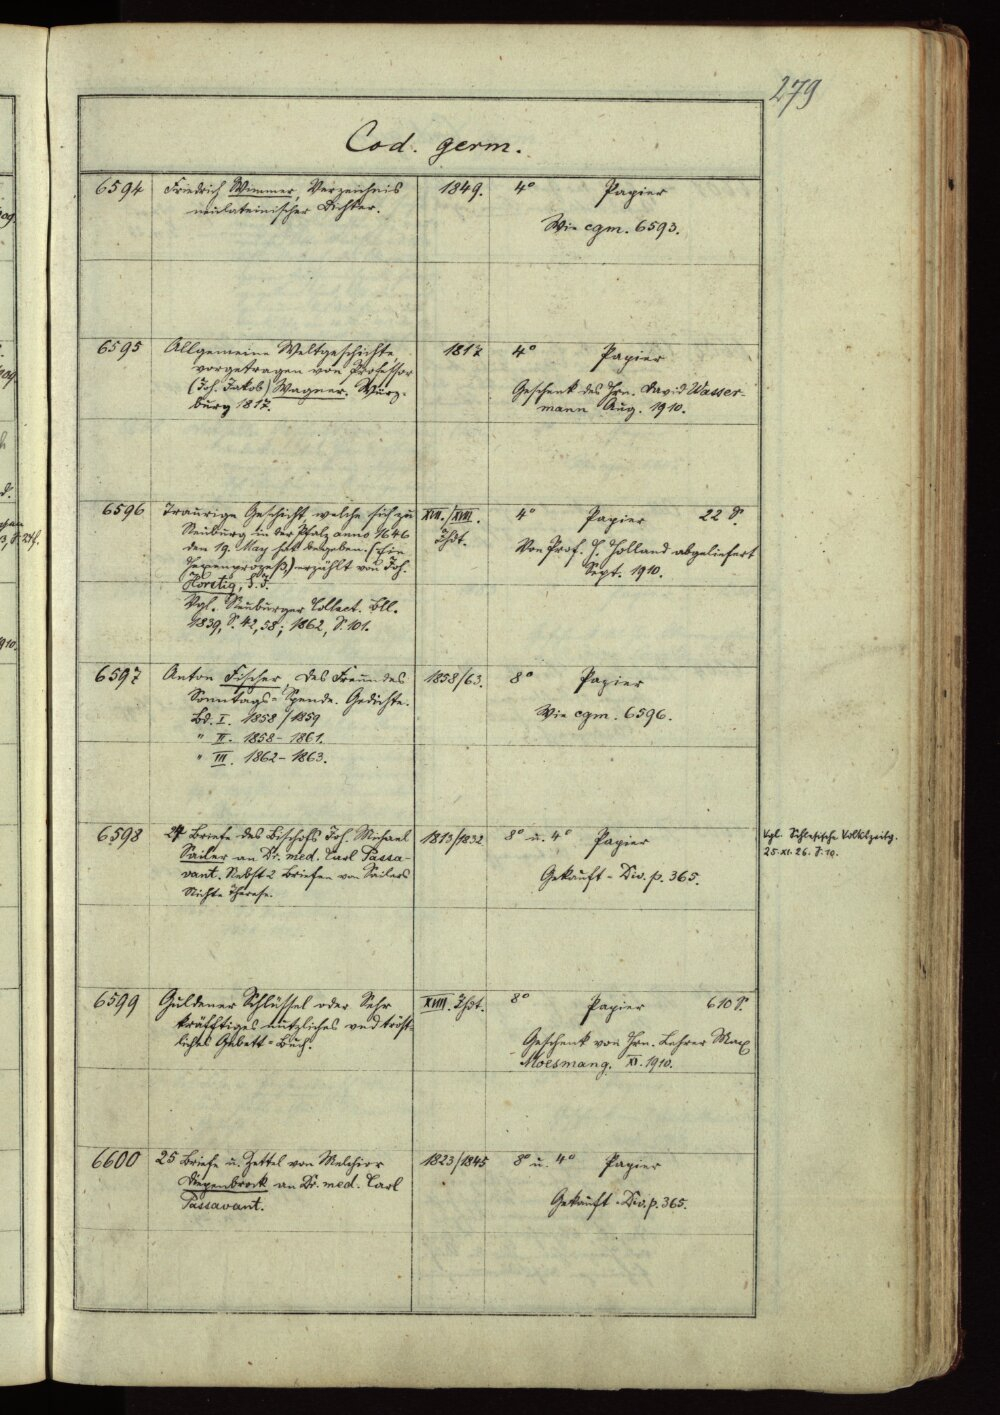 279
Cod. germ.
6594 Friedrich Wimmer, Verzeichnis 1849. 4° Papier
neulateinischer Dichter.
Wie cgm. 6593.
6595 Allgemeine Weltgeschichte, 1817 4° Papier
vorgetragen von Professor
(Joh. Jakob) Wagner. Würz- Geschenk des Hrn. David Wasser-
burg 1817. mann Aug. 1910.
6596 Traurige Geschicht welche sich zu XVII./XVIII. 4° Papier 22 S.
Neuburg in der Pfalz anno 1646 Jhdt.
den 19. May hat begeben. (Ein Von Prof. H. Holland abgeliefert
Hexenprozeß) erzählt von Joh. Sept. 1910.
Horetig, S.J.
Vgl. Neuburger Collect. Bll.
1839, S. 42, 58; 1862, S. 101.
6597 Anton Fischer, Des Freundes 1858/63. 8° Papier
Sonntags-Spende. Gedichte.
Bd. I. 1858/1859 Wie cgm. 6596.
" II. 1858-1861.
" III. 1862-1863.
6598 24 Briefe des Bischofs Joh. Michael 1813/1832 8° u. 4° Papier Vgl. Schlesische Volkszeitg.
Sailer an Dr. med. Carl Passa- 25.XI.26. S. 10.
vant. Nebst 2 Briefen von Sailers Gekauft - Div. p. 365.
Nichte Therese.
6599 Guldener Schlüssel oder Sehr XVIII. Jhdt. 8° Papier 610 S.
kräfftiges nützliches und tröst-
liches Gebett-Buch. Geschenk von Hrn. Lehrer Max
Moesmang. XI. 1910.
6600 25 Briefe u. Zettel von Melchior 1823/1845 8° u. 4° Papier
Diepenbrock an Dr. med. Carl
Passavant. Gekauft - Div. p. 365.